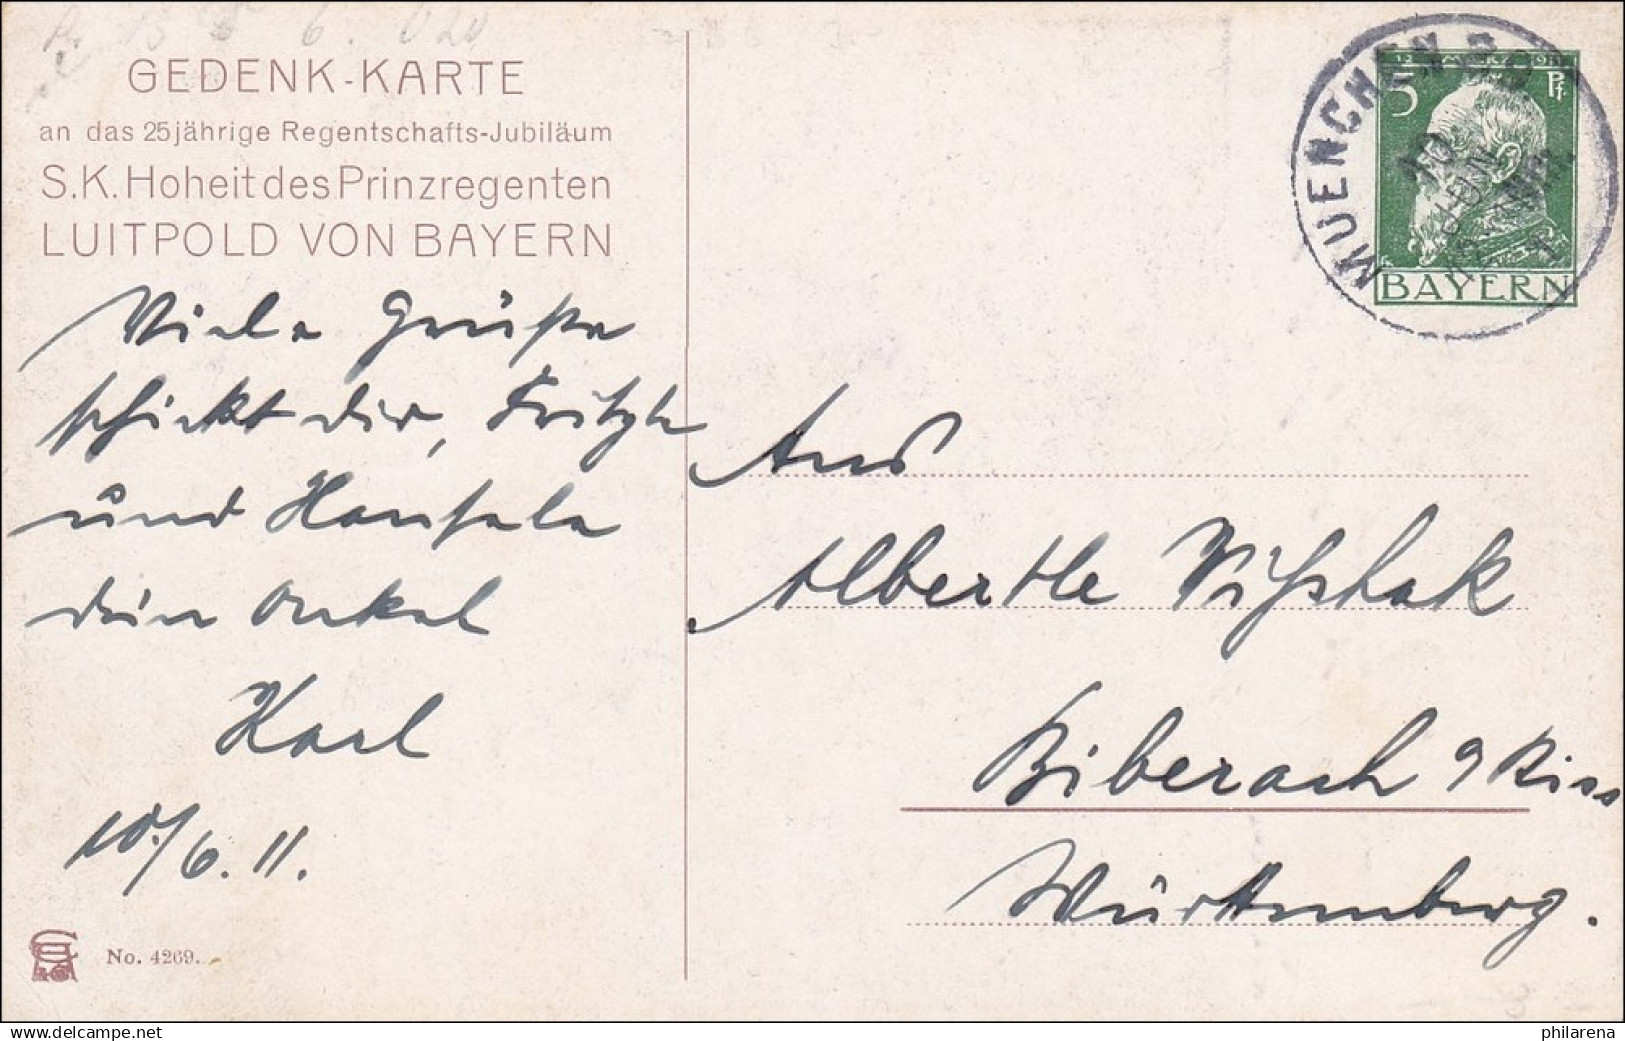 GEDENK-KARTE
an das 25jährige Regentschafts-Jubiläum
S.K. Hoheit des Prinzregenten
LUITPOLD VON BAYERN
Viele Grüße
schickt dir, Fritzle
und Hansele
dein Onkel
Karl
10./6.11.
No. 4269.
MUENCHEN
5 Pf.
BAYERN
An
Albertle
Biberach a Riss
Württemberg.
www.delcampe.net
philarena